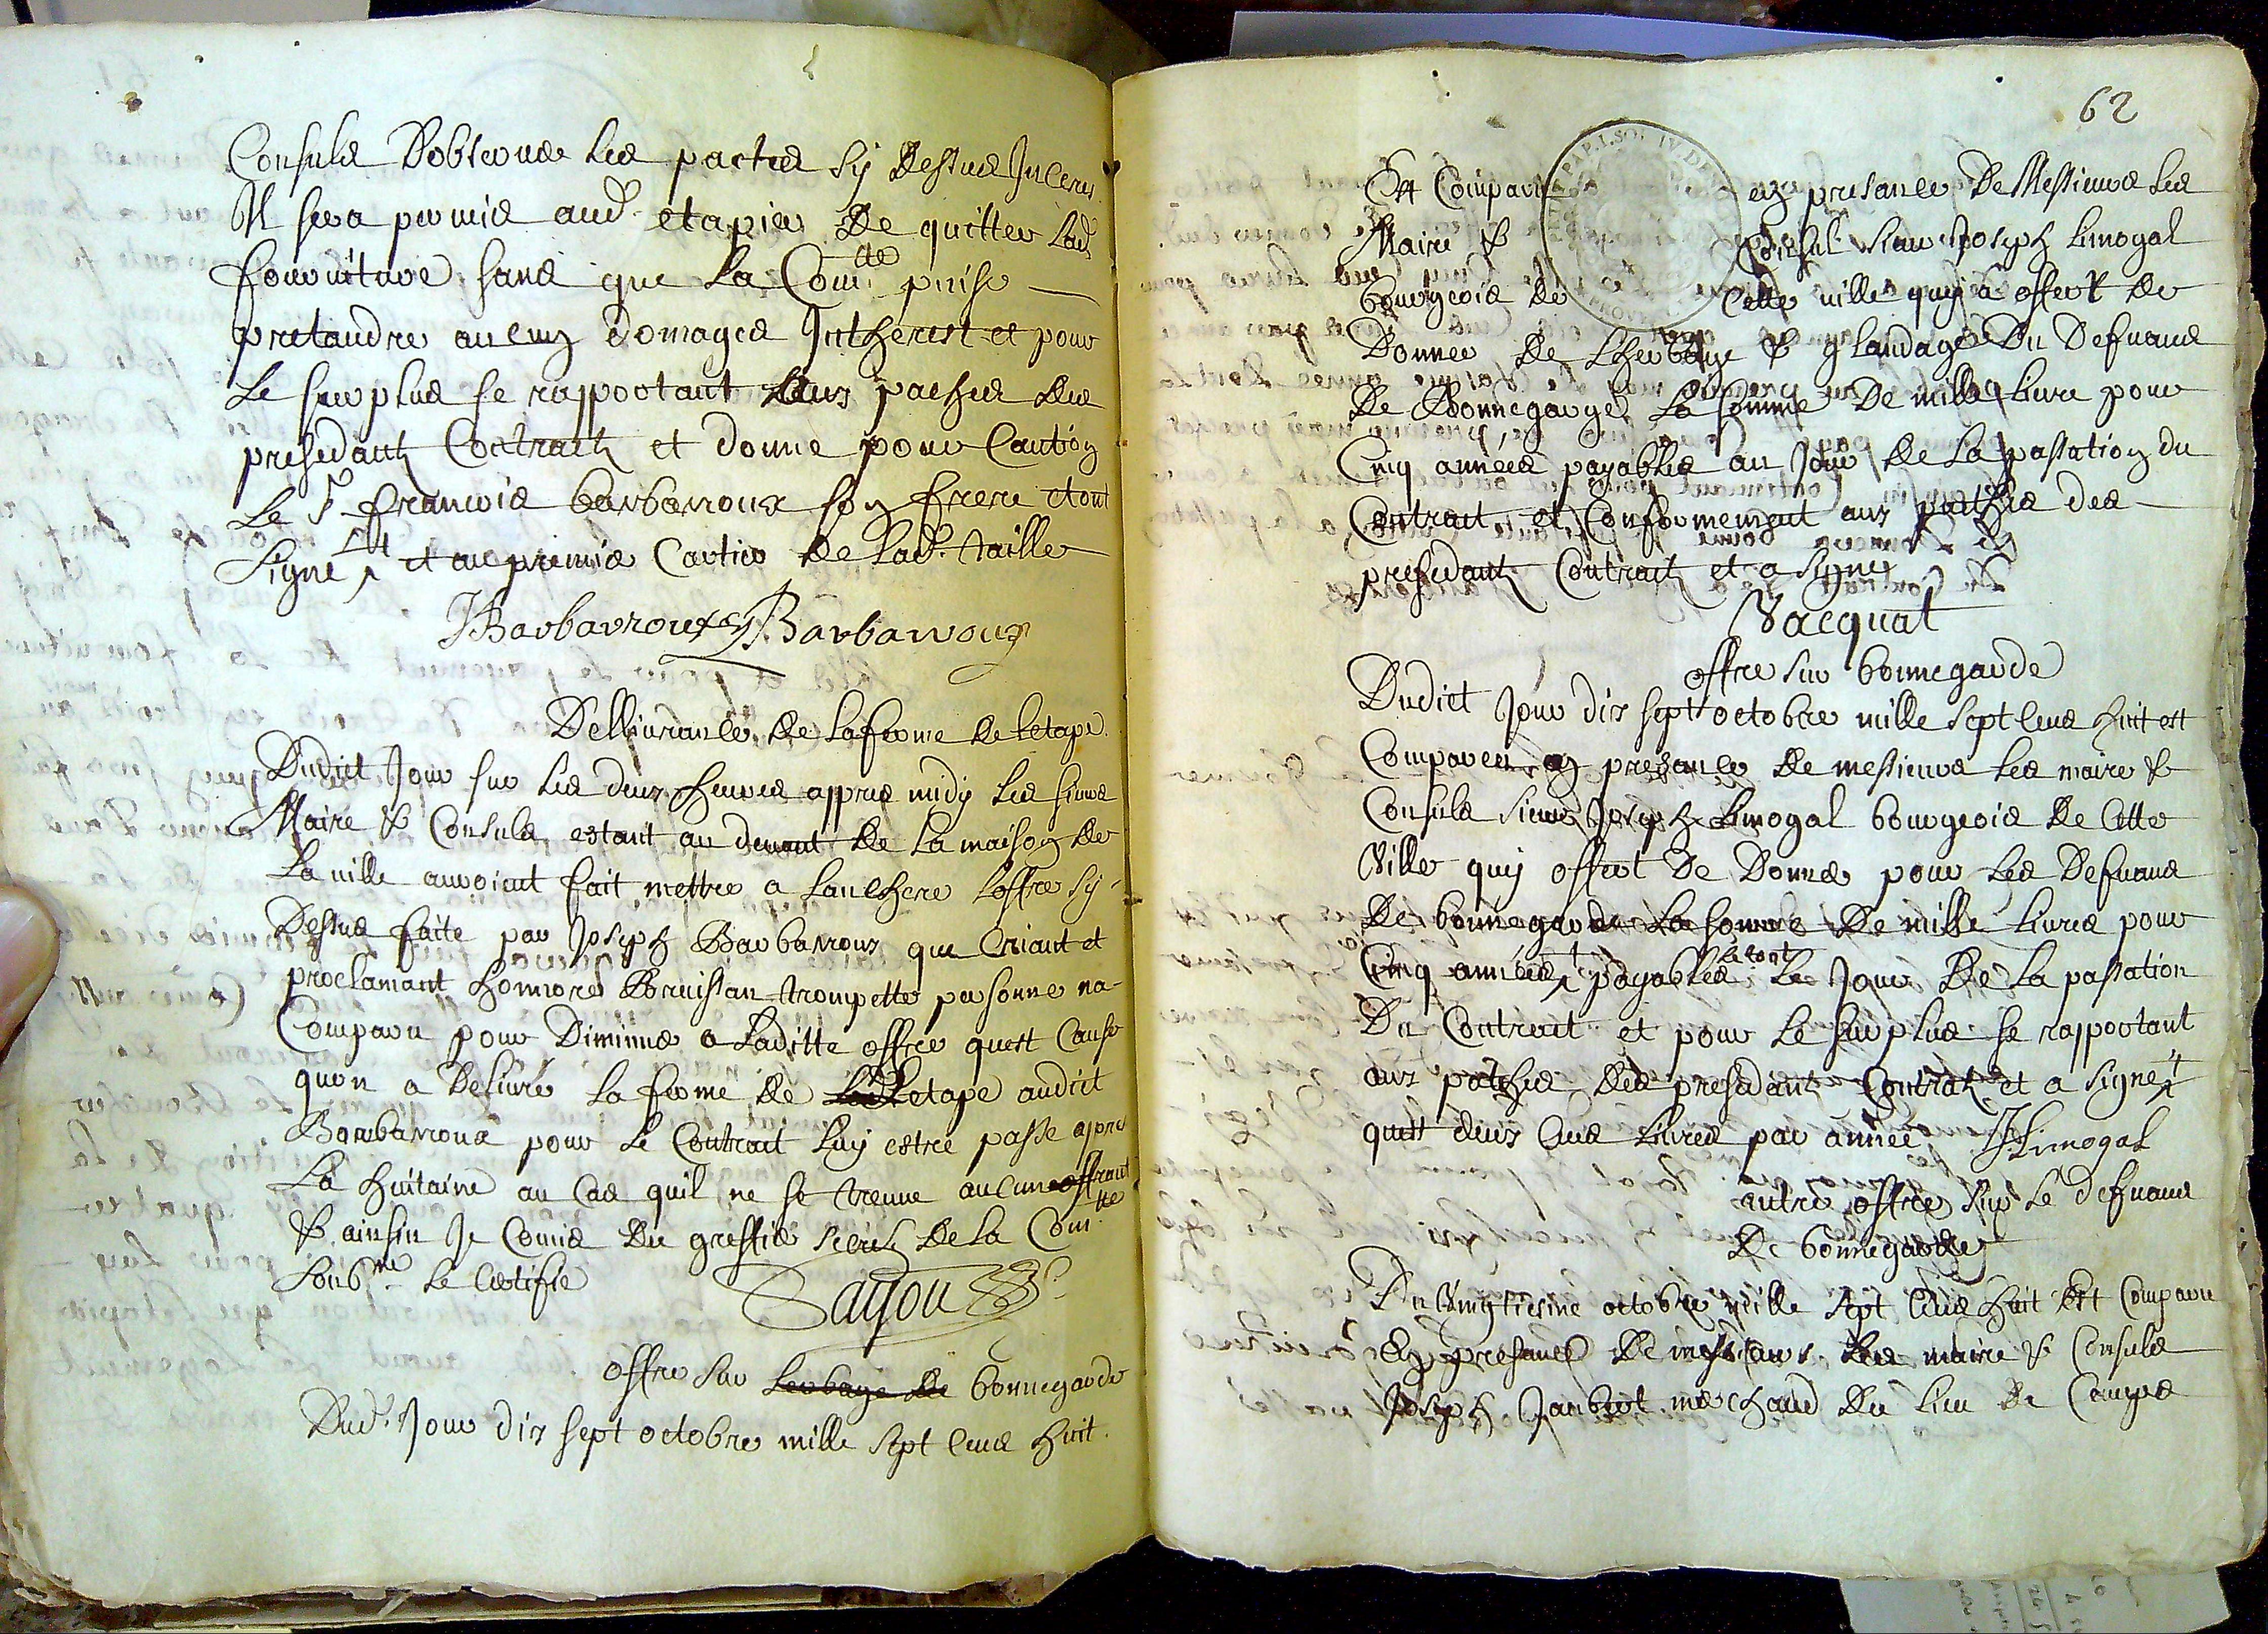 Consuls Dobserver les pactes sy dessus Inceres
Il sera permis aud. etapier de quitter lad
fourniture sans que la Com.tte puise
pretandre aucung domages Jntherest et pour
le surplus se rapportant aux paches des
presedantz Contractz et donne pour Cautiong
Le Sr francois barbarroux song frere et ont
signe et au premie Cartier de lad. taille
JBarbarroux FBarbarroux
Dellivrance de la ferme de letape
Dudict Jour sur les deux heures appres midy les sieurs
Maire & Consuls estant au devant de la maisong de
la ville auroient fait mettre a lenchere loffre sy
dessus faite par Joseph Barbarroux que Criant et
proclamant honnore trompette personne na
Comparu pour Diminue a laditte offre quest Cause
quon a delivré la ferme de letape audict
Barbarroux pour le Contract luy estre passe apres
la huitaine au Cas quil ne se treuve aucune offrant
& ainsin Je Comis du greffe de la Com.tte
soub.né le Certifie
Sayou
offre sur lerbage de bonnegarde
Dud. Jour dix sept octobre mille sept cens huit.
62
Est Comparu eng presance de Messieurs les
Maire & Consul sieur Joseph limogal
bourgeois de Cette ville quy a offert de
Donner de Lherbage & glandage du Defuans
De Bonnegarge la somme de mille Livre pour
Cinq années payables au Jour de la passationg du
Contrait et Conformement aux pathes des
presedantz Contractz et a signe
Vacquat
offre sur bonnegarde
Dudict Jour dix sept octobre mille sept cens huit est
Compareu eng presance de messieurs les maire &
Consuls sieur Joseph Limogal bourgeois de Cette
Ville quy offert de Donner pour les Defuans
De bonnegarde la somme de mille livres pour
Cinq années payables le Jour de la passation
Du Contract et pour le surplus se rapportant
aux pathes des presedant Contratz et a signe
quest deux Cens livres par année JLimogal
autre offre sur le defuans
De bonnegarde
Du Vingtiesme octobre mille sept cens huit Est Comparu
Eng presance De messieurs les maire & Consuls
Joseph Jaubert marchand du lieu de Camps